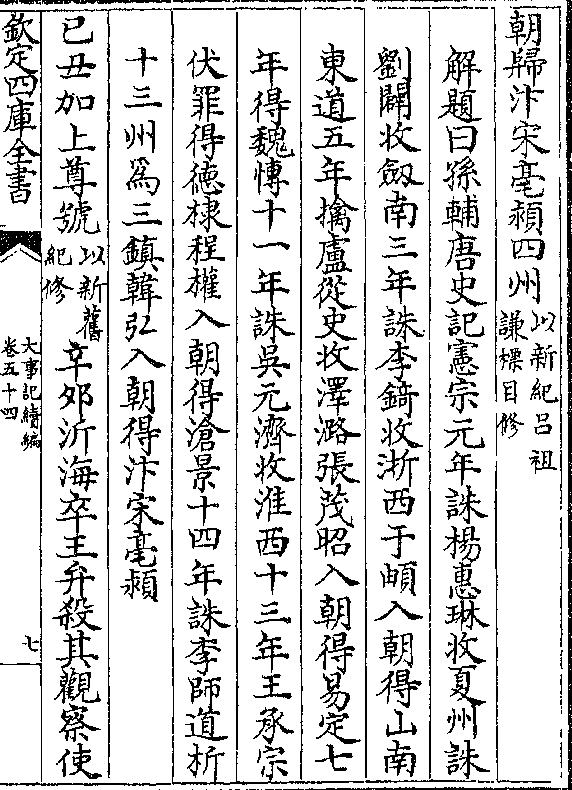 朝歸汴宋亳潁四州以新紀呂祖
謙標目修
解題曰孫輔唐史記憲宗元年誅楊惠琳收夏州誅
劉闢收劒南三年誅李錡收浙西于頔入朝得山南
東道五年擒盧從史收澤潞張茂昭入朝得易定七
年得魏博十一年誅吳元濟收淮西十三年王承宗
伏罪得德棣程權入朝得滄景十四年誅李師道析
十三州爲三鎮韓弘入朝得汴宋亳潁
己丑加上尊號以新舊
紀修
辛卯沂海卒王弁殺其觀察使
欽定四庫全書
大事記續編
卷五十四
七